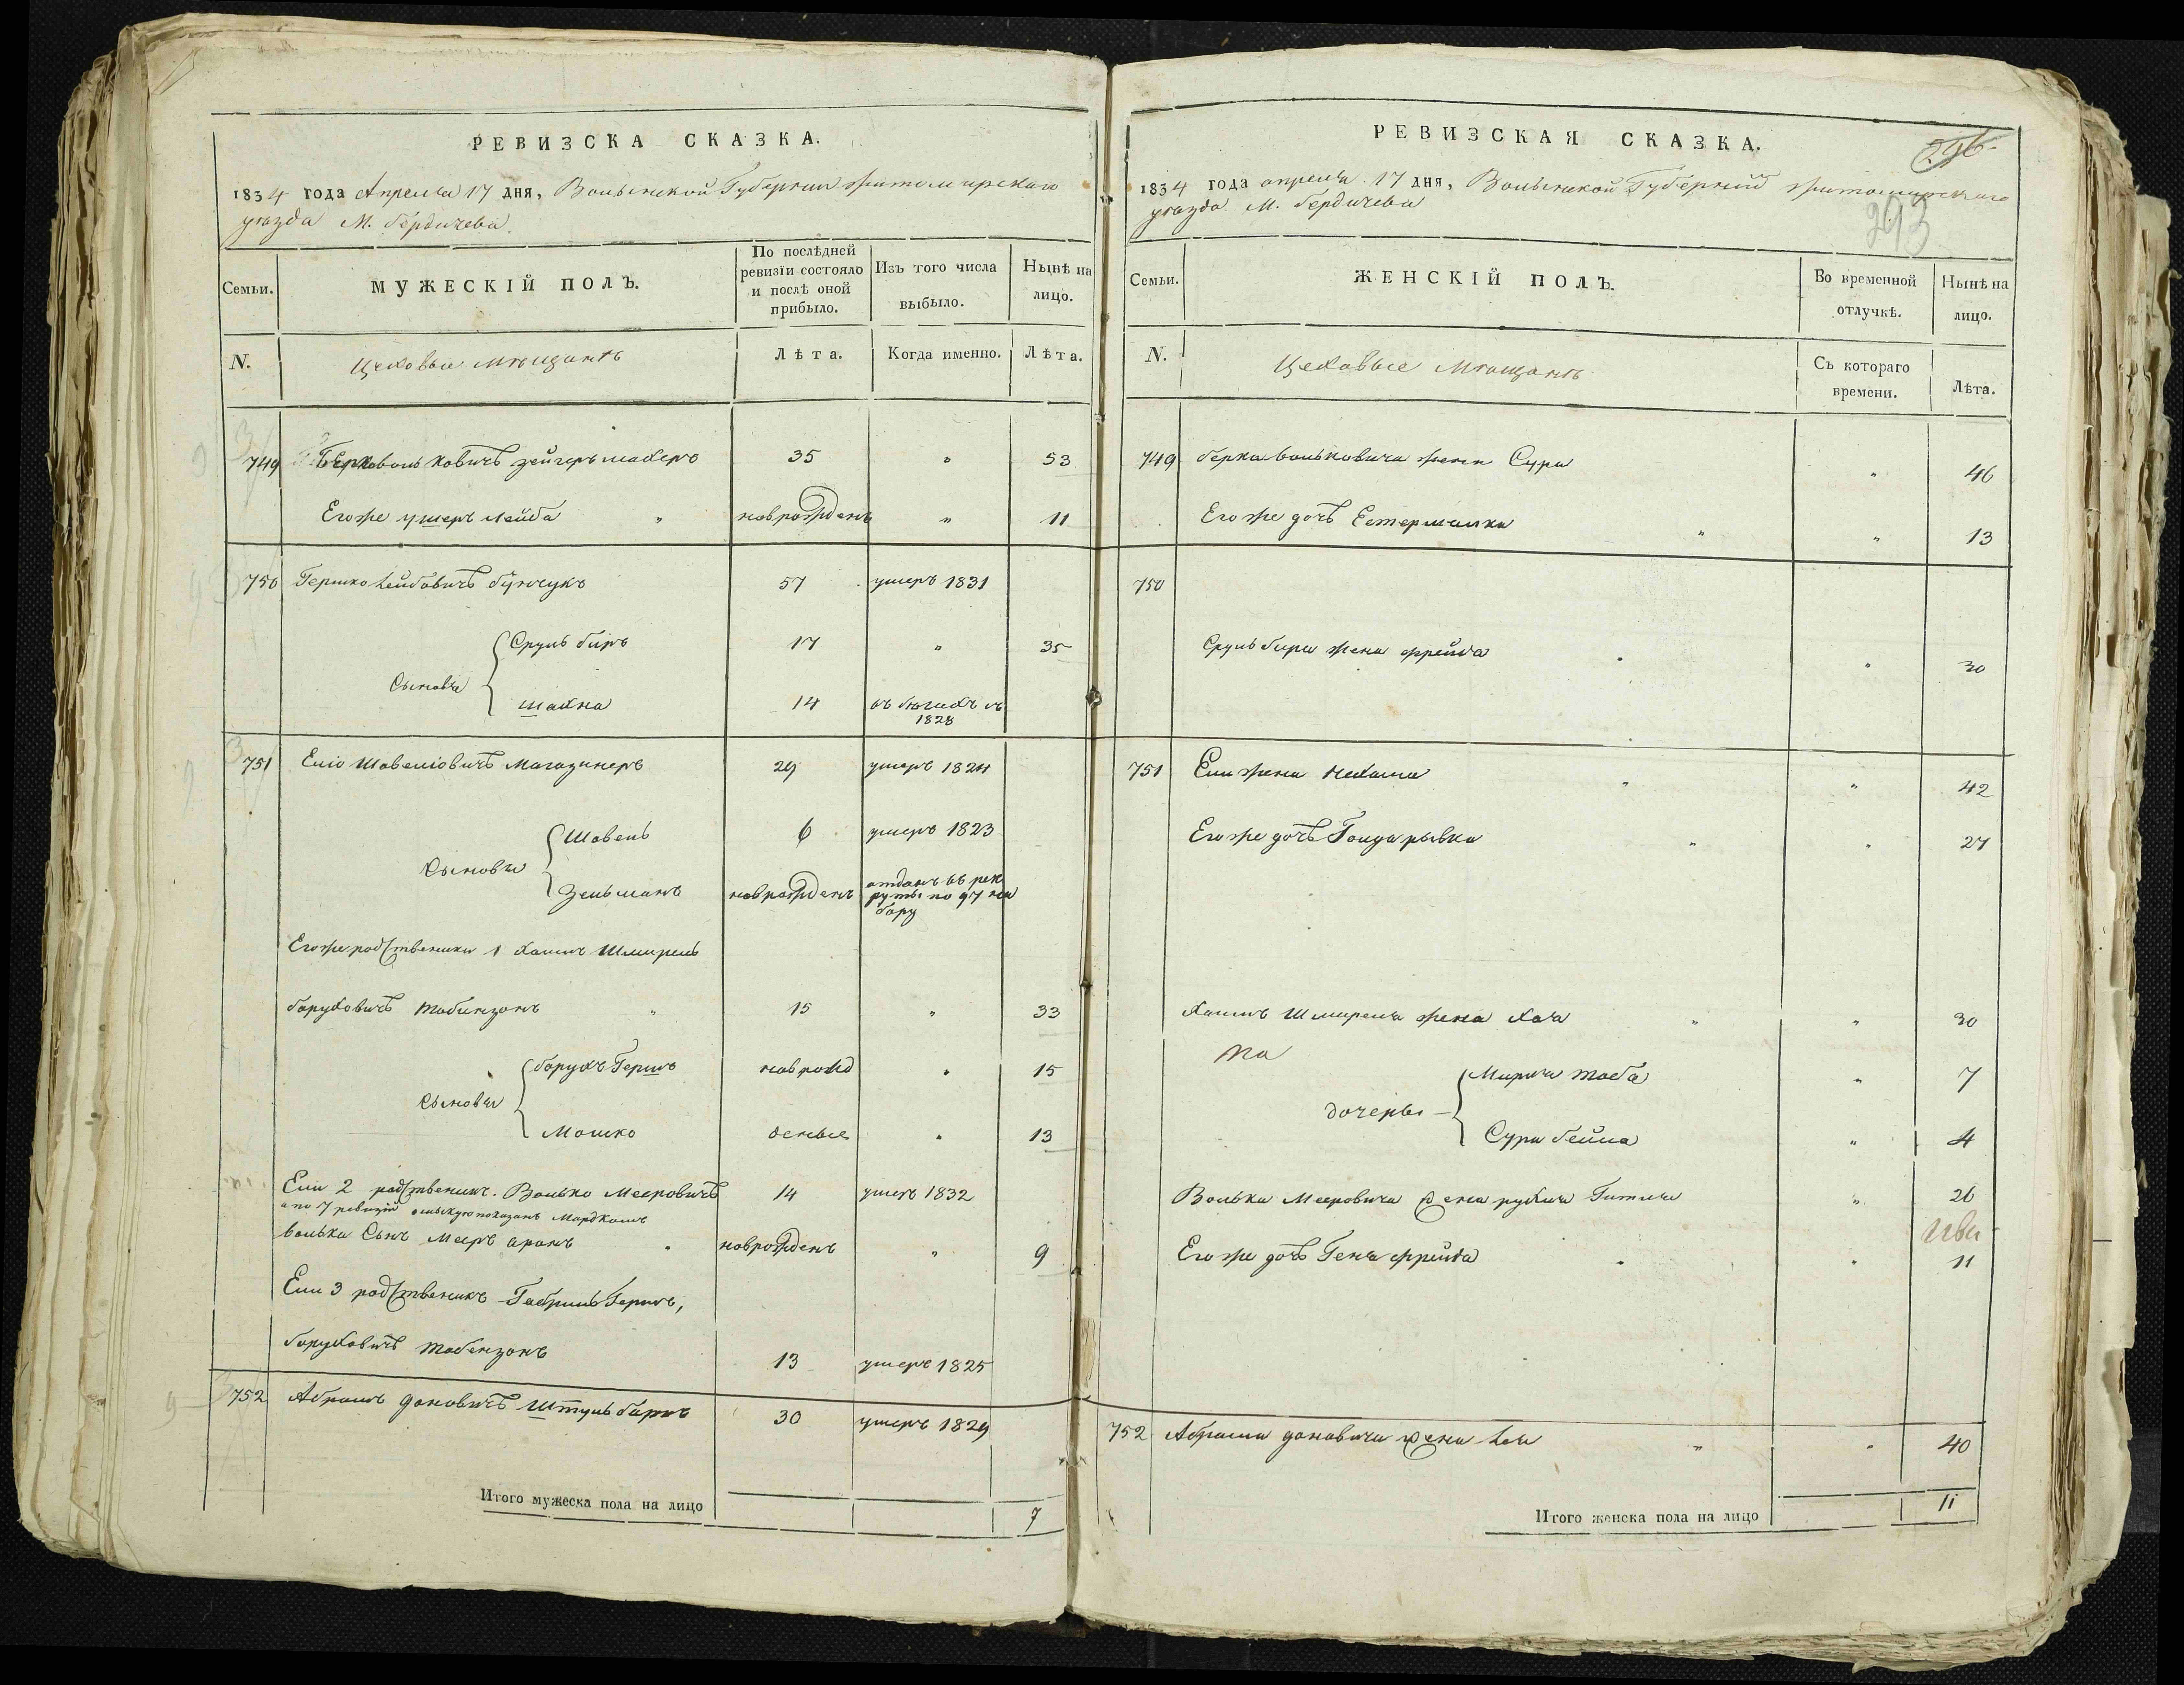 РЕВИЗСКА СКАЗКА.
1834 года Апреля 17 дня, Волынской Губернии Житомирскаго
уѣзда М. Бердичева.
Семьи.
МУЖЕСКІЙ ПОЛЪ.
По послѣдней ревизіи состояло и послѣ оной прибыло.
Изъ того числа выбыло.
Нынѣ на лицо.
N.
Цеховые мѣщанъ
Лѣта.
Когда именно.
Лѣта.
749 Берко Вольковичъ Зейгермахеръ 35 " 53
Егоже Умеръ Лейба " новрожденъ " 11
750 Гершко Лейбовичъ Бунчукъ 57 умеръ 1831
Сыновья
Сруль Беръ 17 " 35
Шахна 14 въ бѣгахъ съ 1828
751 Еліо Шавеліовичъ Магазинеръ 29 умеръ 1824
Сыновья
Шавель 6 умеръ 1823
Зельманъ новрожденъ отданъ въ рекруты по 97 набору
Егоже родственики 1 Хаимъ Шмирель
Боруховичъ Тобинзонъ " 15 " 33
Сыновья
Борухъ Гершъ новрожд " 15
Мошко " 13
Ели 2 родственикъ. Волько Мееровичъ 14 умеръ 1832
а по 7 ревизіи показанъ Мордкомъ
Волька Сынъ Мееръ Аронъ " новрожденъ " 9
Ели 3 родственикъ Гершъ,
Боруховичъ Тобензонъ 13 умеръ 1825
752 Абрамъ Доновичъ Штульбармъ 30 умеръ 1829
Итого мужеска пола на лицо 7
РЕВИЗСКАЯ СКАЗКА.
1834 года апреля 17 дня, Волынской Губерніи Житомирскаго
уѣзда М. Бердичева
293
Семьи.
ЖЕНСКІЙ ПОЛЪ.
Во временной отлучкѣ.
Нынѣ на лицо.
N.
Цеховые Мѣщанъ
Съ котораго времени.
Лѣта.
749 Берка Вольковича жена Сура " 46
Егоже дочь Естермалка " " 13
750
Сруль Бера жена Фрейда " " 30
751 Ели жена Нехама " " 42
Егоже дочь Голдарывка " " 27
Хаимъ Шмиреля жена Хая " " 30
дочеры
Мирля Тоба " 7
Сура Бейла " 4
Волька Мееровича жена Рухля Гитля " 26
Егоже дочь Геня Фрейда " " 11
752 Абрама Доновича жена Лея " " 40
Итого женска пола на лицо 11